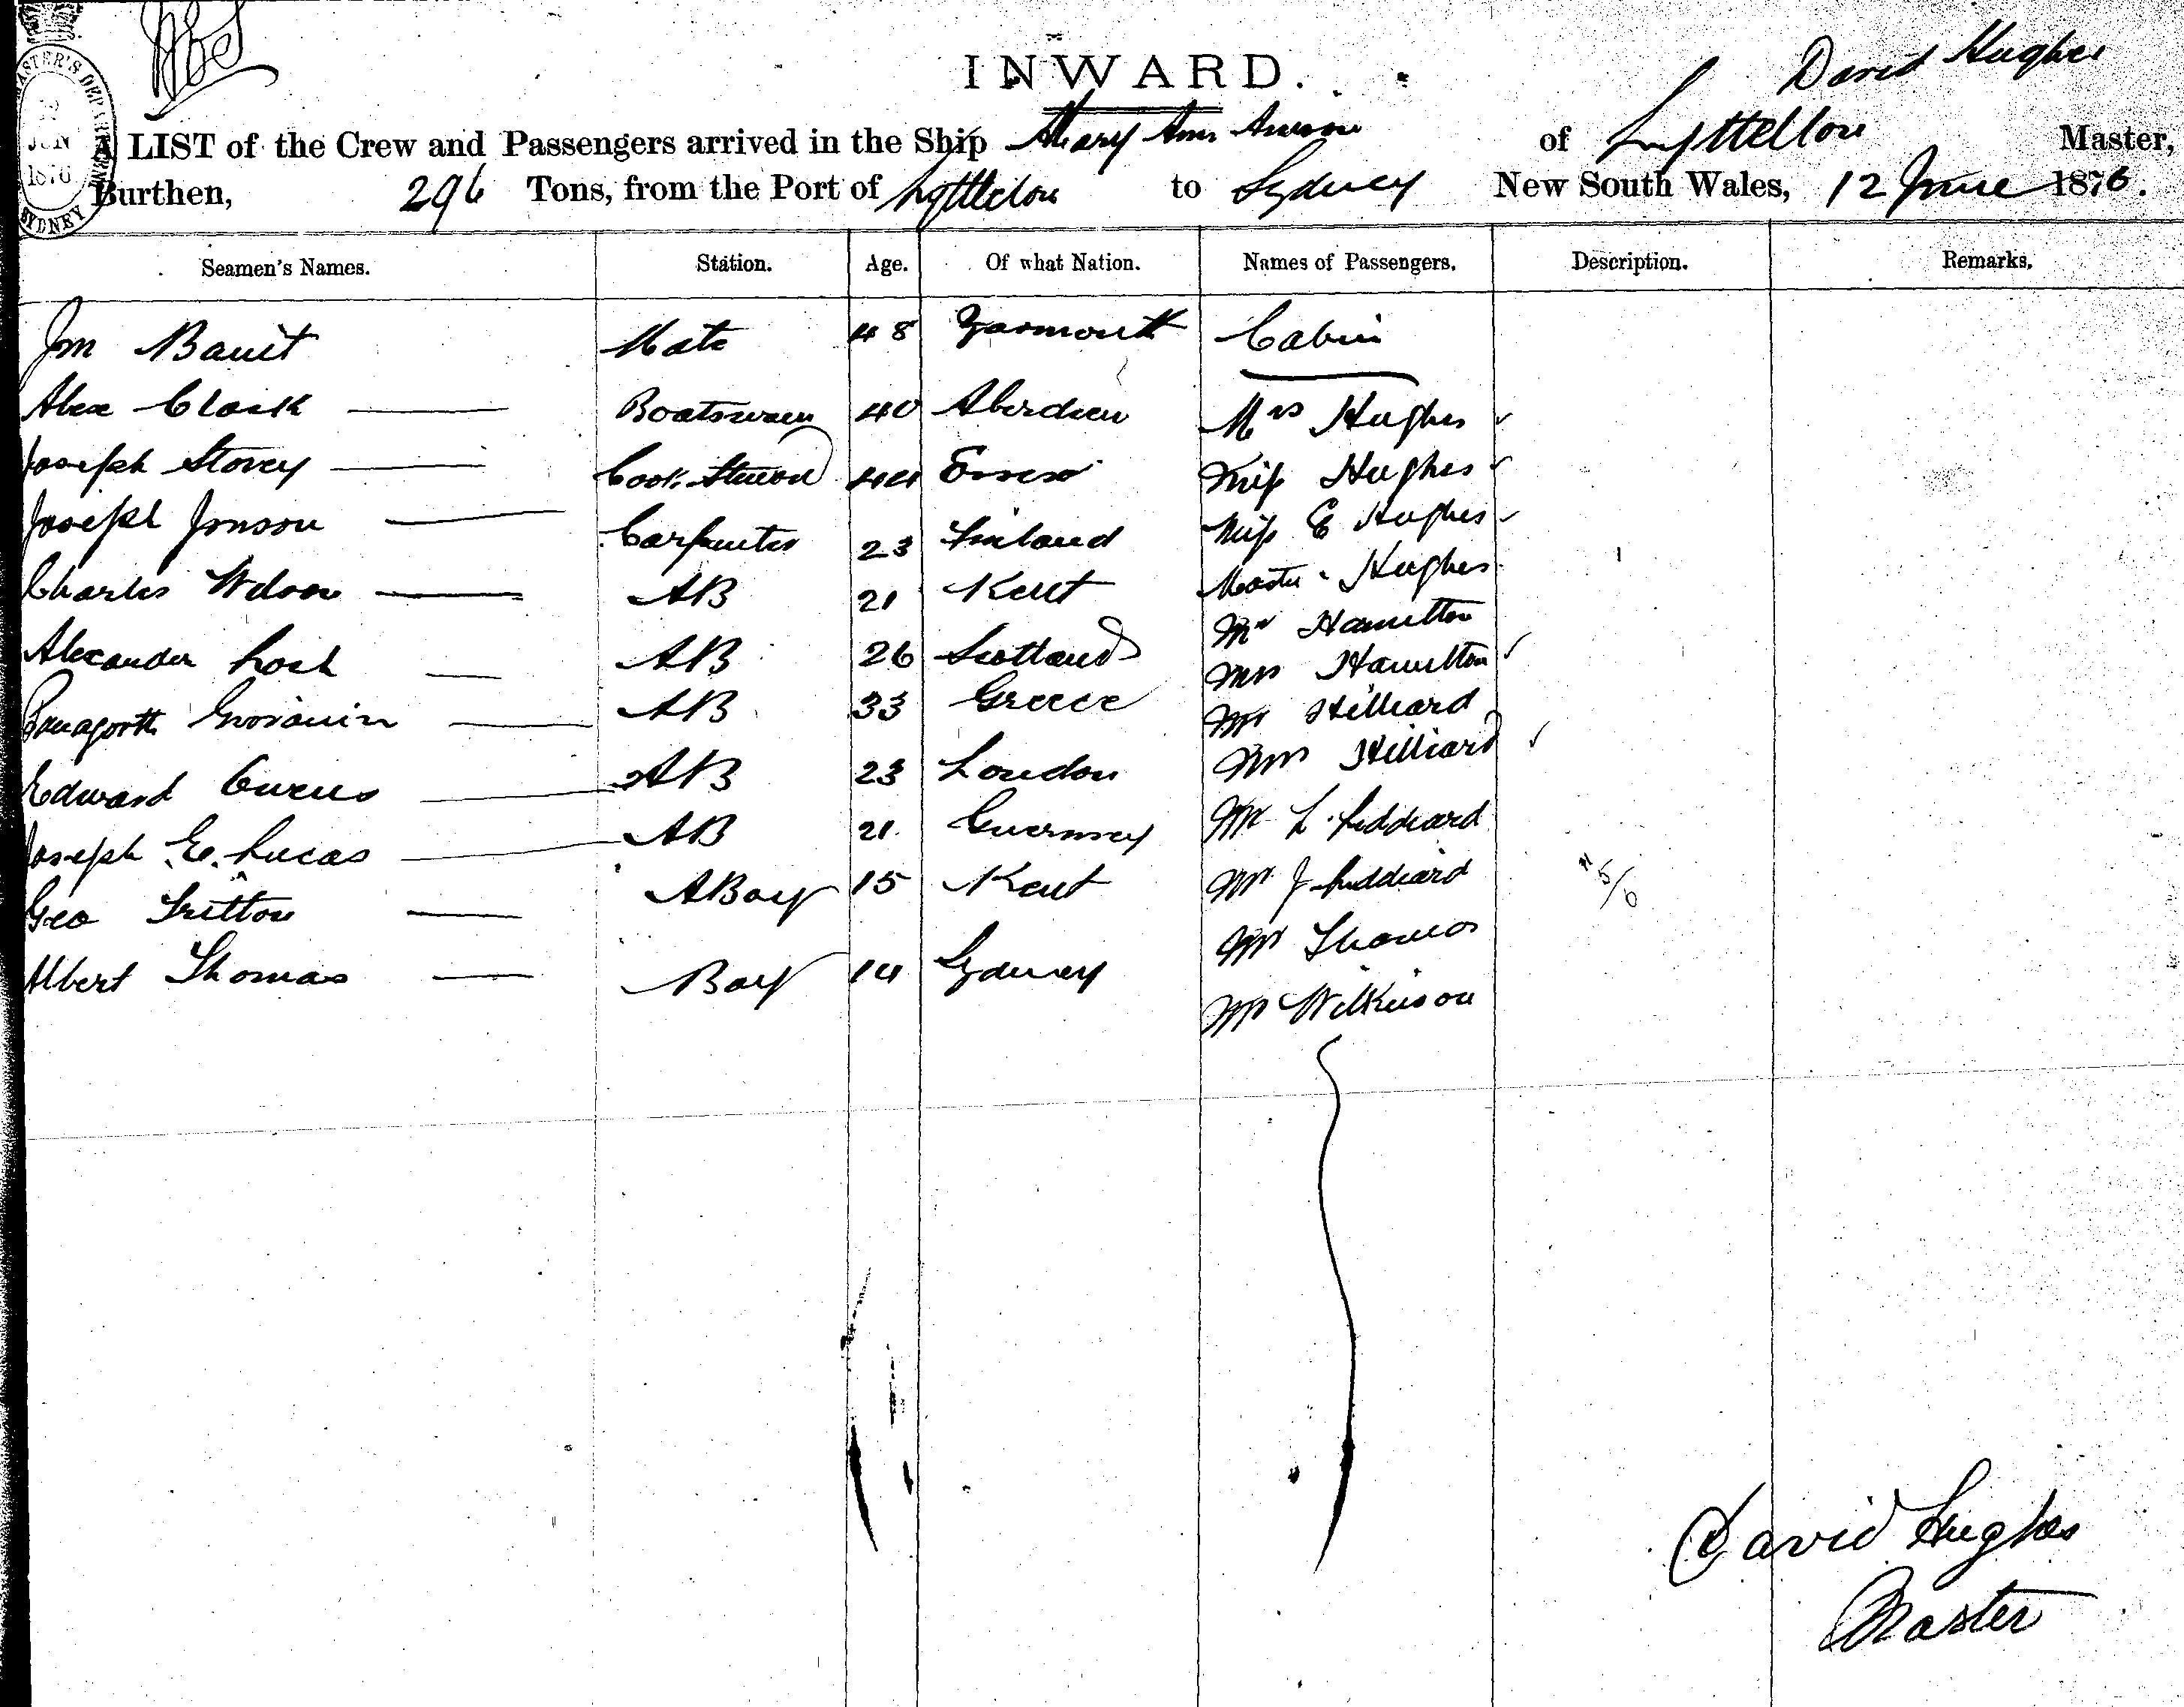 INWARD.
David Hughes
A LIST of the Crew and Passengers arrived in the Ship Mary Ann of Lyttelton Master,
Burthen, 296 Tons, from the Port of Lyttelton to Sydney New South Wales, 12 June 1876.
SYDNEY
JUN
Seamen's Names. Station. Age. Of what Nation. Names of Passengers. Description. Remarks.
Mate 48 Yarmouth Cabin
Alex Clark Boatswain 40 Aberdeen Mrs Hughes
Joseph Storey Cook Steward 44 Essex Miss Hughes
Joseph Jonson Carpenter 23 Finland Miss E Hughes
Charles AB 21 Kent Master Hughes
Mr Hamilton
Alexander AB 26 Scotland Mrs Hamilton
AB 33 Greece Mr Hilliard
Edward Owens AB 23 London Mrs Hilliard
Joseph E. Lucas AB 21 Guernsey Mr L. Liddiard
Geo Tritton ABoy 15 Kent Mr J Liddiard
5/6
Mr Thomas
Albert Thomas Boy 14 Sydney
Mr Wilkinson
David Hughes
Master